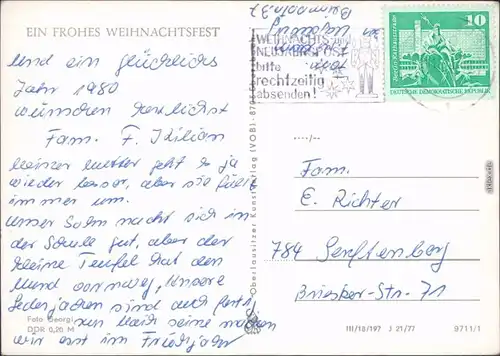 EIN FROHES WEIHNACHTSFEST
Und ein glückliches
Jahr 1980
wünschen herzlichst
Fam. F. Kilian
Meiner Mutter geht es ja
wieder besser, aber sie fällt
immer um.
Unser Sohn macht sich in
der Schule gut, aber der
kleine Teufel hat den
Mund vornweg, Unsere
Lederjacken sind auch fertig
nun
seine machen
wir erst im Frühjahr
Foto Georgi
DDR 0,20 M
Oberlausitzer Kunstverlag (VOB) · 8701
WEIHNACHTS- und
NEUJAHRSPOST
bitte
rechtzeitig
absenden!
10
DEUTSCHE DEMOKRATISCHE REPUBLIK
Fam.
E. Richter
784 Senftenberg
Briesker-Str. 71
III/18/197 J 21/77
9711/1